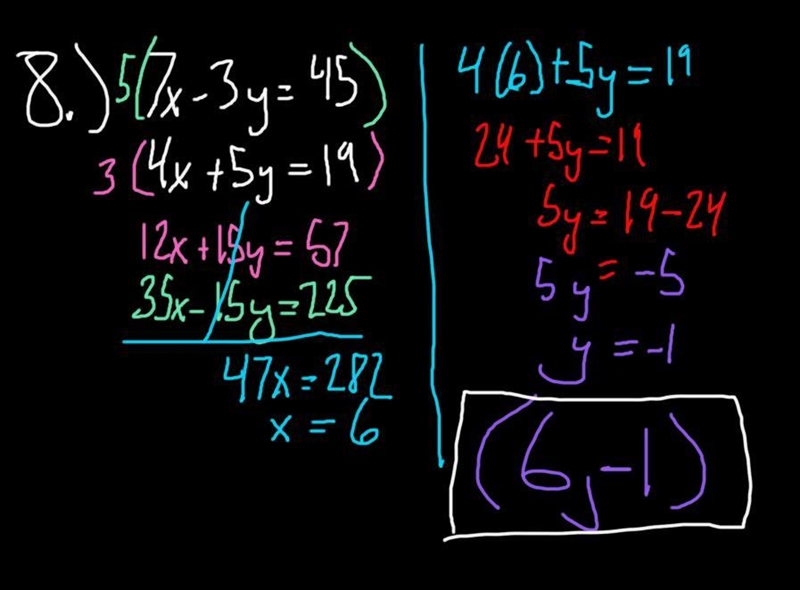 8.) 5(7x-3y=45)
3(4x+5y=19)
12x+15y=57
35x-15y=225
47x=282
x=6
4(6)+5y=19
24+5y=19
5y=19-24
5y=-5
y=-1
(6,-1)